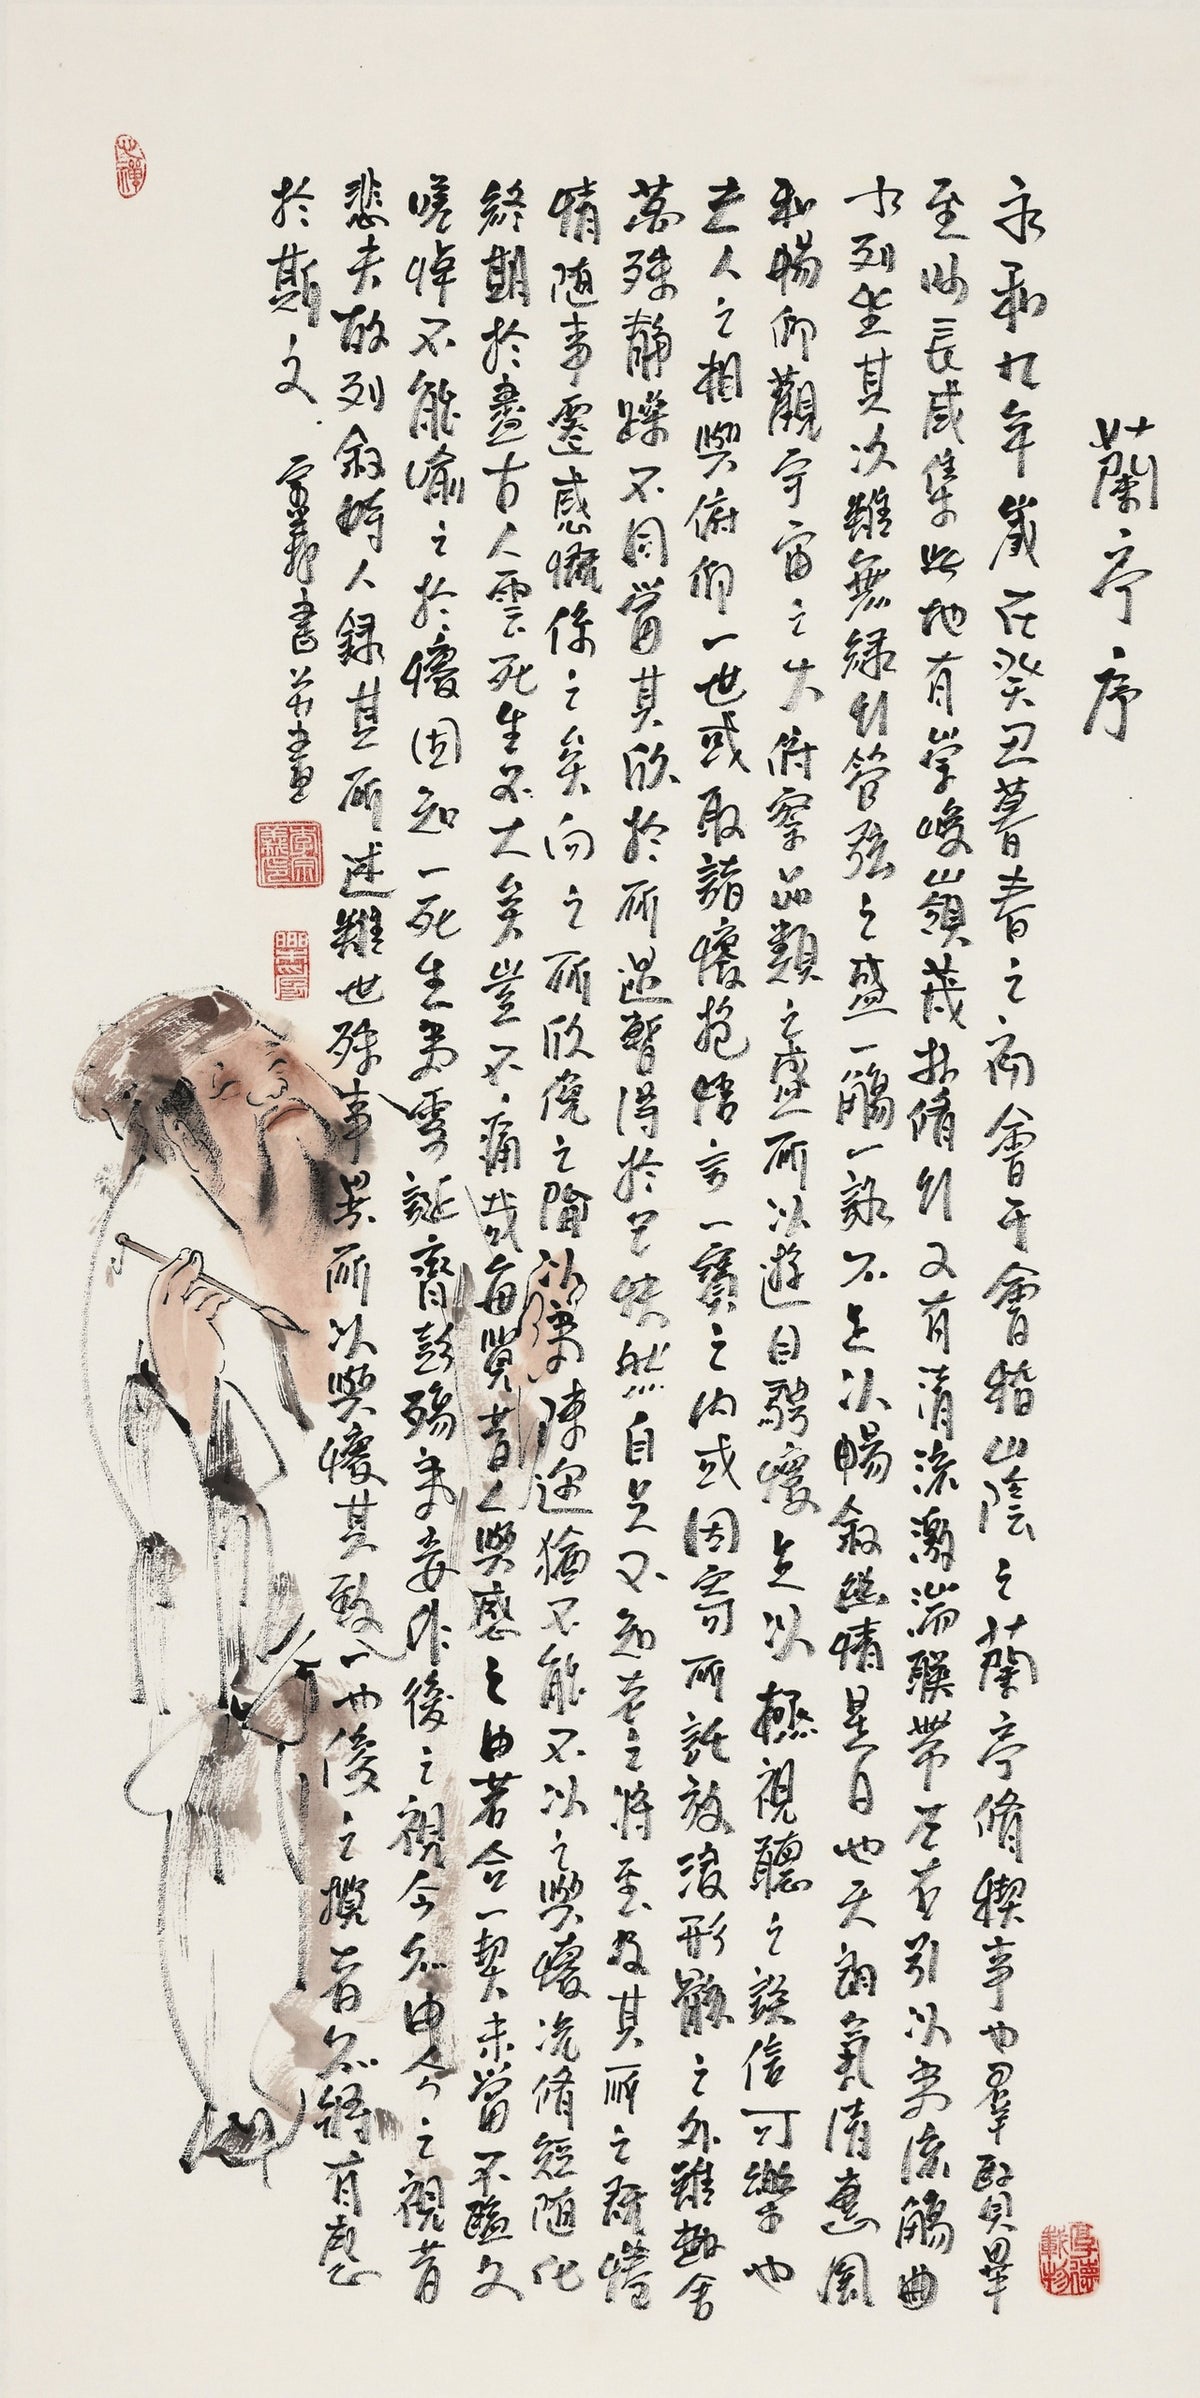 蘭亭序
永和九年歲在癸丑暮春之初會于會稽山陰之蘭亭脩稧事也羣賢畢
至少長咸集此地有崇峻嶺茂林脩竹又有清流激湍暎帶左右引以為流觴曲
水列坐其次雖無絲竹管弦之盛一觴一詠亦足以暢敘幽情是日也天朗氣清惠風
和暢仰觀宇宙之大俯察品類之盛所以遊目騁懷足以極視聽之娛信可樂也
夫人之相與俯仰一世或取諸懷抱悟言一室之內或因寄所託放浪形骸之外雖趣舍
萬殊靜躁不同當其欣於所遇暫得於己怏然自足不知老之將至及其所之既惓
情隨事遷感慨係之矣向之所欣俛之間以為陳迹猶不能不以之興懷況脩短隨化
終期於盡古人雲死生亦大矣豈不痛哉每覽昔人興感之由若合一契未嘗不臨文
嗟悼不能喻之於懷固知一死生為虛誕齊彭殤為妄作後之視今亦由今之視昔
悲夫故列敘時人錄其所述雖世殊事異所以興懷其致一也後之攬者亦將有感
於斯文 宗義書并畫
李宗義印
厚德載物